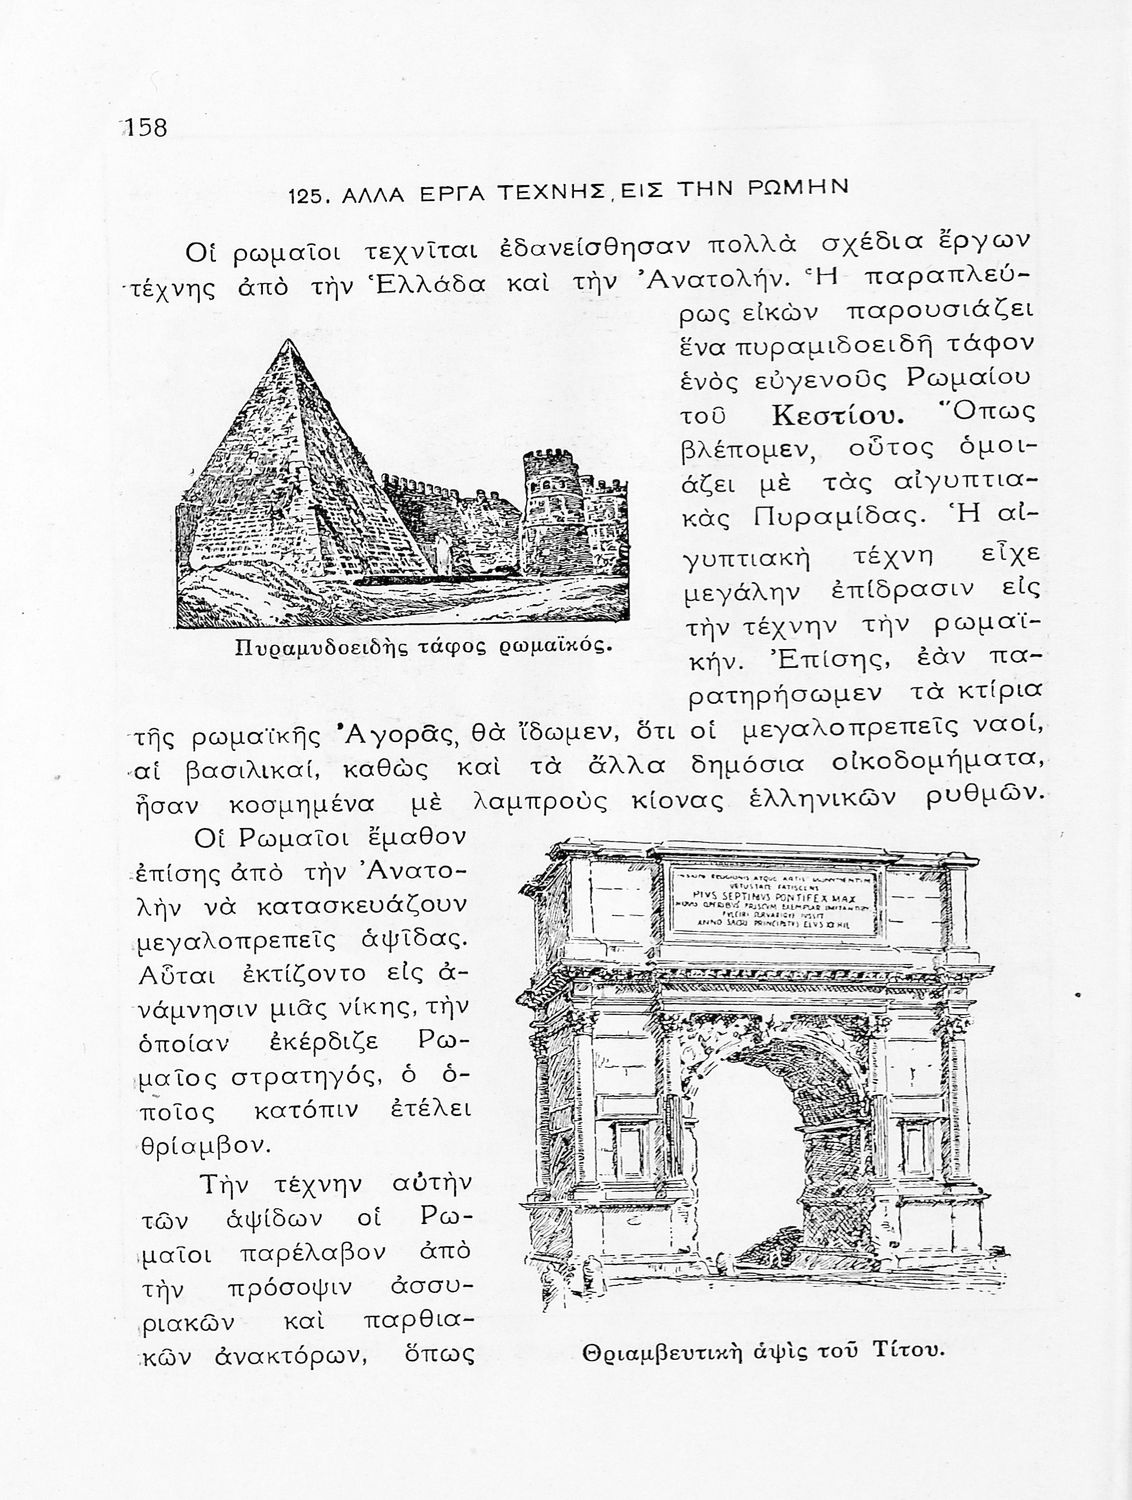 158
125. ΑΛΛΑ ΕΡΓΑ ΤΕΧΝΗΣ ΕΙΣ ΤΗΝ ΡΩΜΗΝ
Οἱ ρωμαῖοι τεχνῖται ἐδανείσθησαν πολλὰ σχέδια ἔργων
τέχνης ἀπὸ τὴν Ἑλλάδα καὶ τὴν Ἀνατολήν. Ἡ παραπλεύ-
ρως εἰκὼν παρουσιάζει
ἕνα πυραμιδοειδῆ τάφον
ἑνὸς εὐγενοῦς Ρωμαίου
τοῦ Κεστίου. Ὅπως
βλέπομεν, οὗτος ὁμοι-
άζει μὲ τὰς αἰγυπτια-
κὰς Πυραμίδας. Ἡ αἰ-
γυπτιακὴ τέχνη εἶχε
μεγάλην ἐπίδρασιν εἰς
τὴν τέχνην τὴν ρωμαϊ-
κήν. Ἐπίσης, ἐὰν πα-
ρατηρήσωμεν τὰ κτίρια
Πυραμυδοειδὴς τάφος ρωμαϊκός.
τῆς ρωμαϊκῆς Ἀγορᾶς, θὰ ἴδωμεν, ὅτι οἱ μεγαλοπρεπεῖς ναοί,
αἱ βασιλικαί, καθὼς καὶ τὰ ἄλλα δημόσια οἰκοδομήματα,
ἦσαν κοσμημένα μὲ λαμπροὺς κίονας ἑλληνικῶν ρυθμῶν.
Οἱ Ρωμαῖοι ἔμαθον
ἐπίσης ἀπὸ τὴν Ἀνατο-
λὴν νὰ κατασκευάζουν
μεγαλοπρεπεῖς ἁψῖδας.
Αὗται ἐκτίζοντο εἰς ἀ-
νάμνησιν μιᾶς νίκης, τὴν
ὁποίαν ἐκέρδιζε Ρω-
μαῖος στρατηγός, ὁ ὁ-
ποῖος κατόπιν ἐτέλει
θρίαμβον.
Τὴν τέχνην αὐτὴν
τῶν ἁψίδων οἱ Ρω-
μαῖοι παρέλαβον ἀπὸ
τὴν πρόσοψιν ἀσσυ-
ριακῶν καὶ παρθια-
κῶν ἀνακτόρων, ὅπως
PIVS SEPTIMVS PONTIFEX MAX
Θριαμβευτικὴ ἁψὶς τοῦ Τίτου.